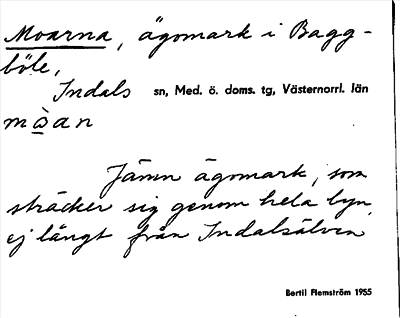 Moarna, ägomark i Bagg-
böle,
Indals sn, Med. ö. doms. tg, Västernorrl. län
mòan
Jämn ägomark, som
sträcker sig genom hela byn,
ej långt från Indalsälven
Bertil Flemström 1955